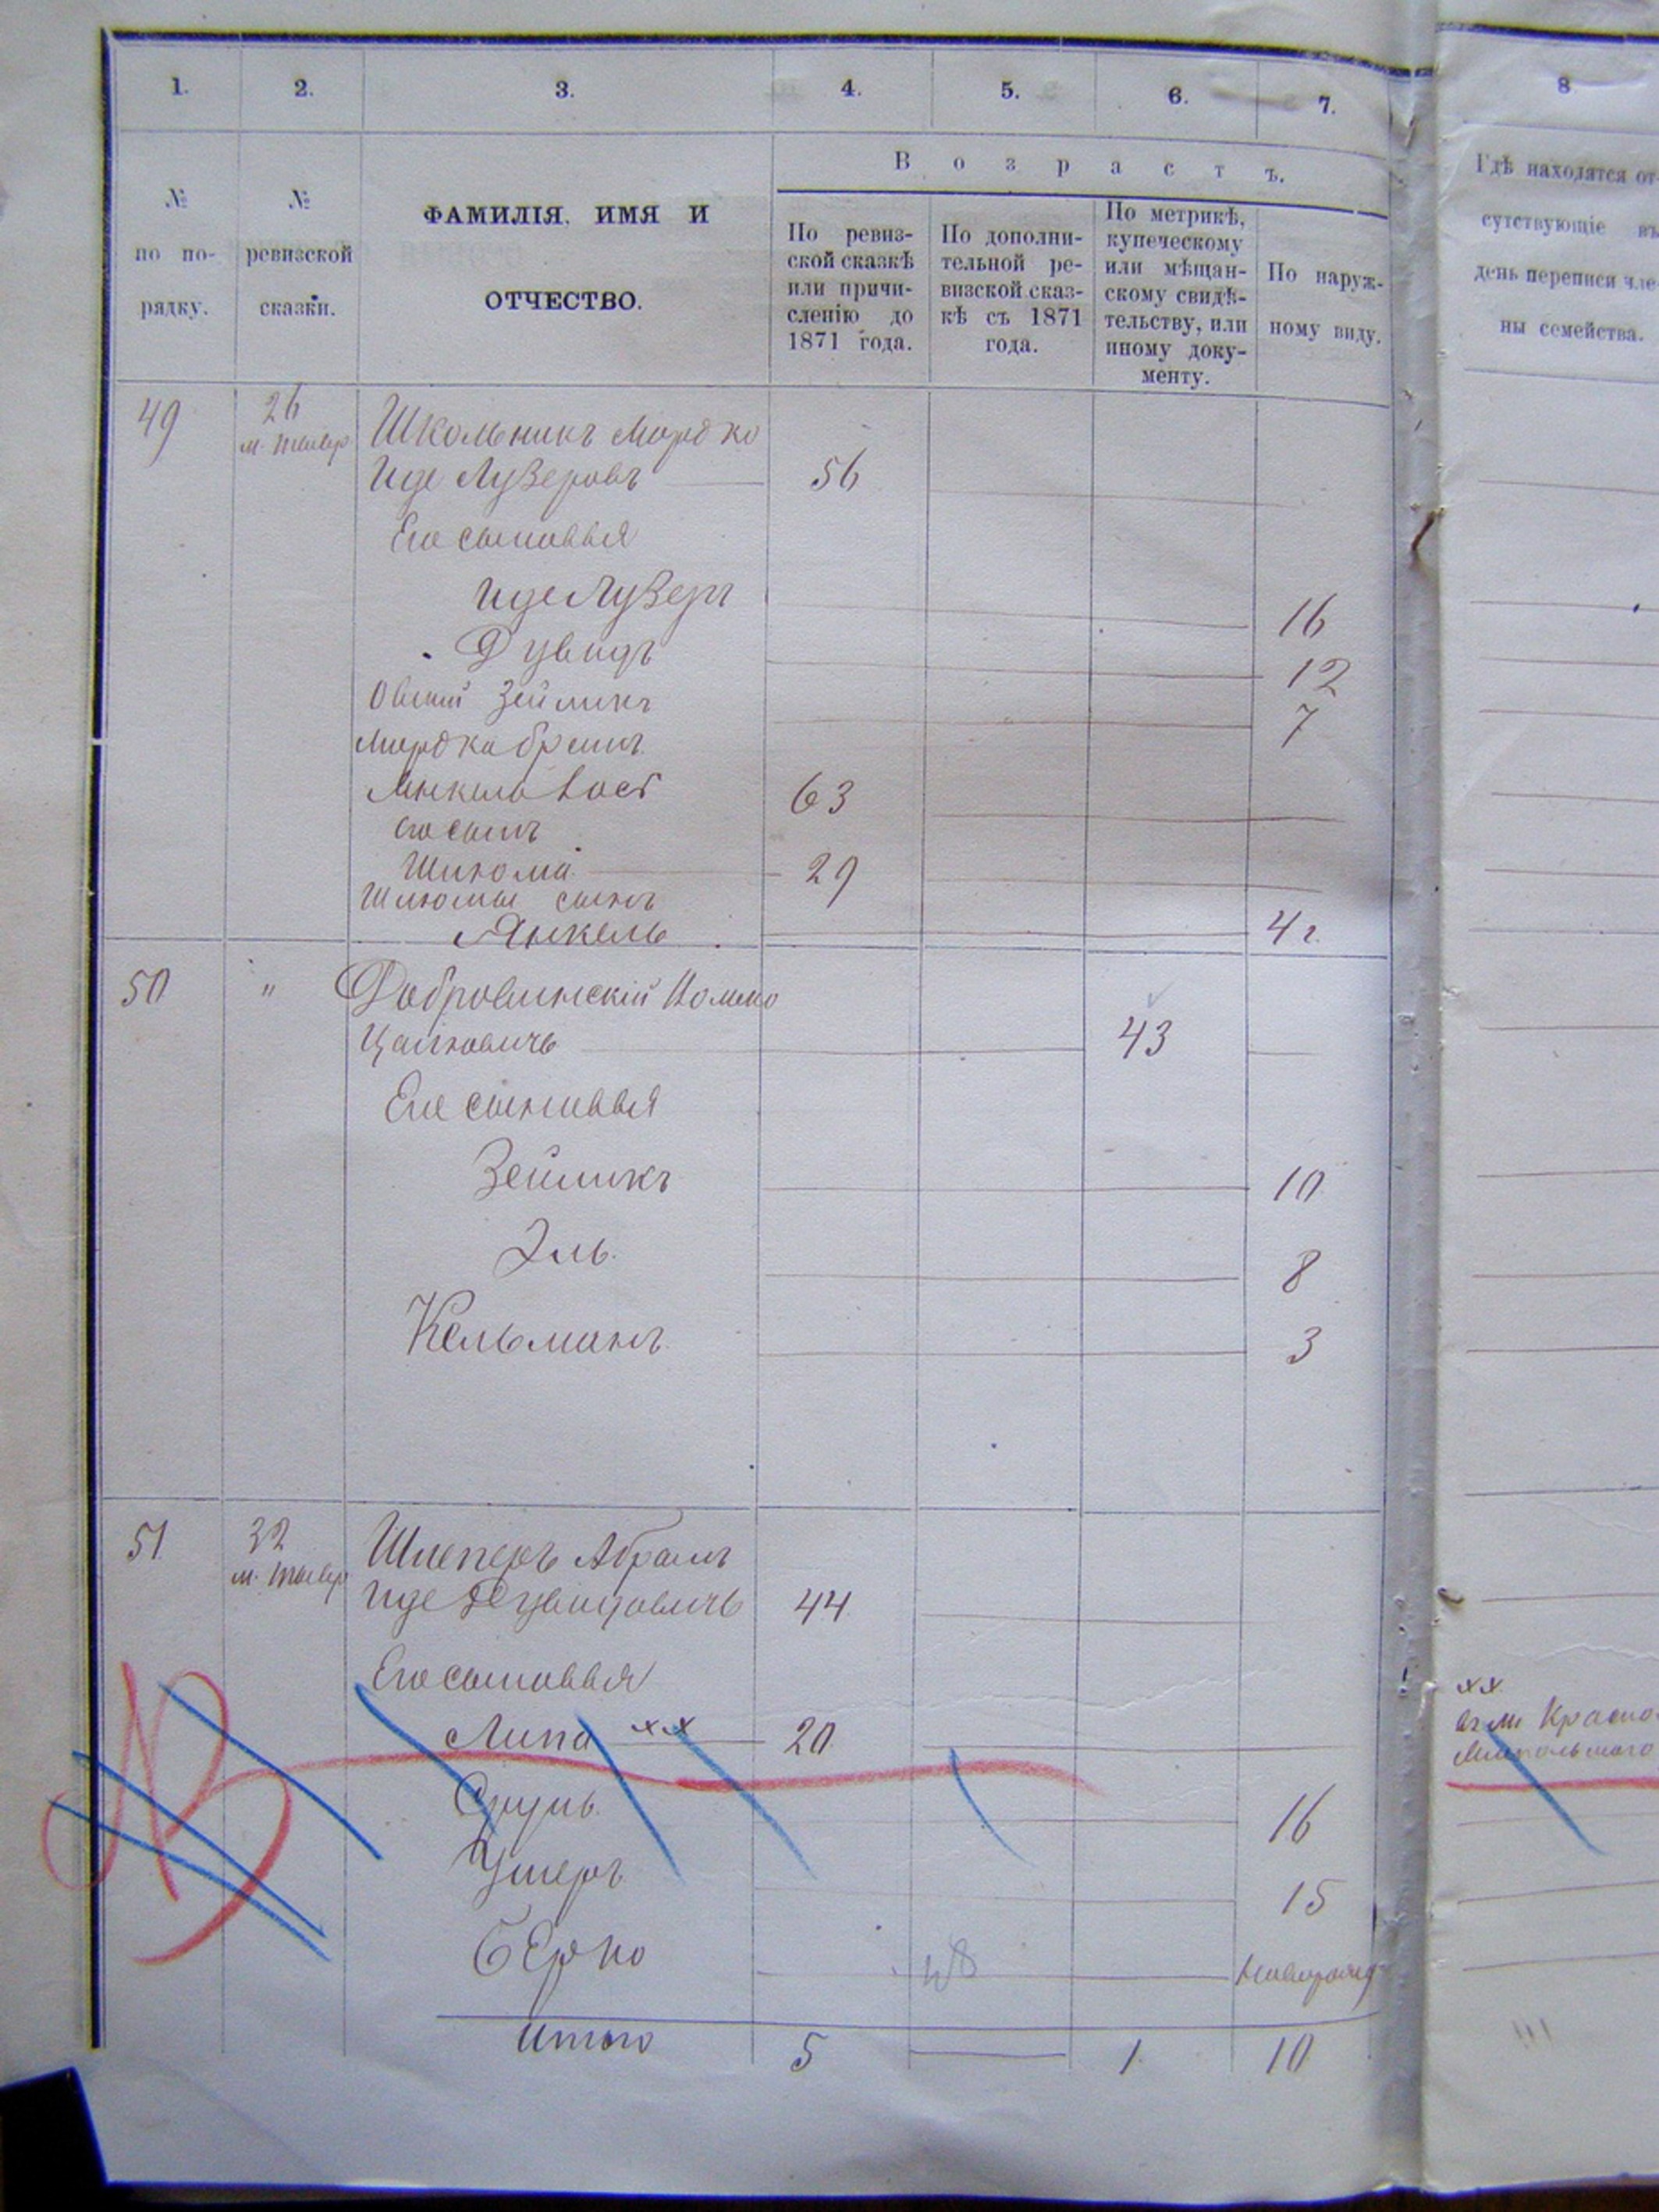 1. 2. 3. 4. 5. 6. 7. 8
№ по по-рядку.
№ ревизской сказки.
ФАМИЛІЯ, ИМЯ И
ОТЧЕСТВО.
Возрастъ.
По ревиз-
ской сказкѣ
или причи-
сленію до
1871 года.
По дополни-
тельной ре-
визской сказ-
кѣ съ 1871
года.
По метрикѣ,
купеческому
или мѣщан-
скому свидѣ-
тельству, или
иному доку-
менту.
По наруж-
ному виду.
Гдѣ находятся от-
сутствующіе въ
день переписи чле-
ны семейства.
49 26 Школьникъ Мордко
Иде Лузеровъ 56
Его сыновья
Иде Лузеръ 16
Дувидъ 12
Овший Зейликъ 7
Мордка братъ
Янкель 63
его сынъ
Шлюма 29
Шлюмы сынъ
Янкель 4 г.
50 " Добровинскій
43
Его сыновья
Зейликъ 10
Эль 8
Кельманъ 3
51 32 Шлеперъ Абрамъ
Иде Дувидовичъ 44
Его сыновья
Липа xx 20
Сруль 16
Ушеръ 15
Берко новорожд
Итого 5 1 10
xx